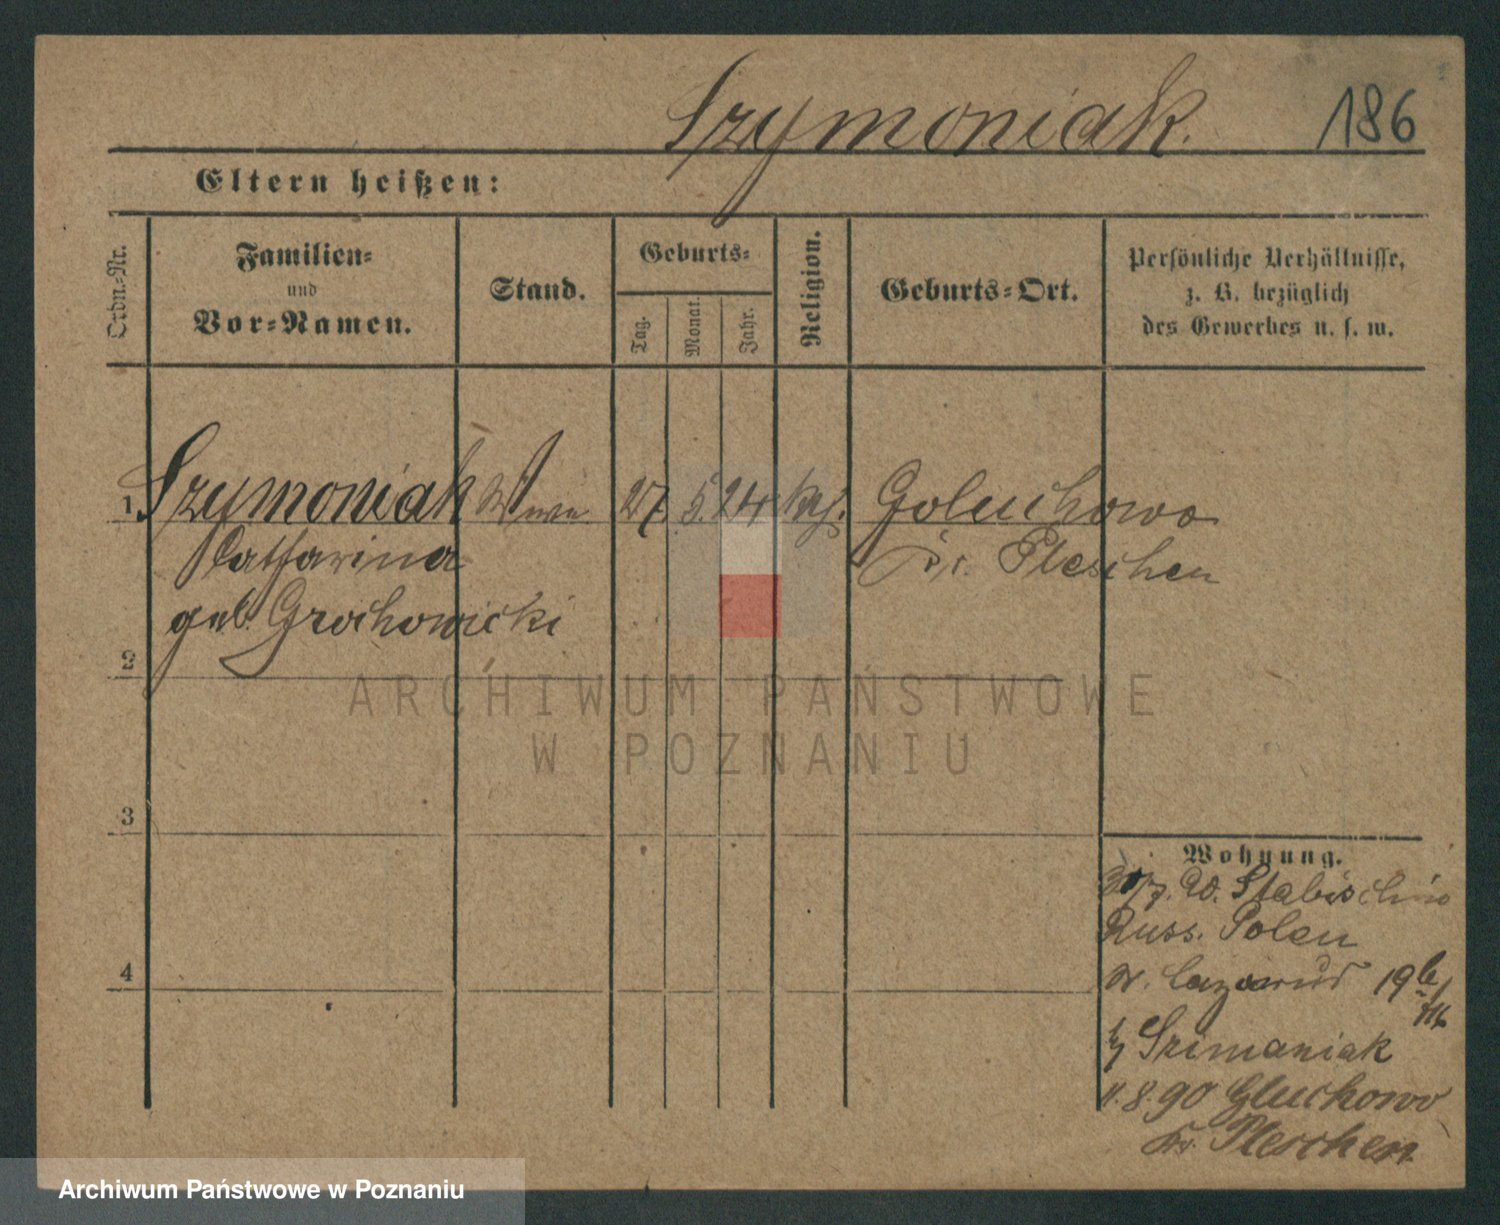 Szymoniak.
186
Eltern heißen:
Ordn.-Nr.
Familien-
und
Vor-Namen.
Stand.
Geburts-
Tag.
Monat.
Jahr.
Religion.
Geburts-Ort.
Persönliche Verhältnisse,
z. B. bezüglich
des Gewerbes u. s. w.
1 Szymoniak Wwe 27. 5. 24 kth. Goluchowo
Catharina Kr. Pleschen
geb. Grochowicki
2
3
4
Wohnung.
90. Stabischino
Russ. Polen
w. Lazarus 19
bei Szimaniak
11.8.90 Gluchowo
Kr. Pleschen
ARCHIWUM PAŃSTWOWE
W POZNANIU
Archiwum Państwowe w Poznaniu